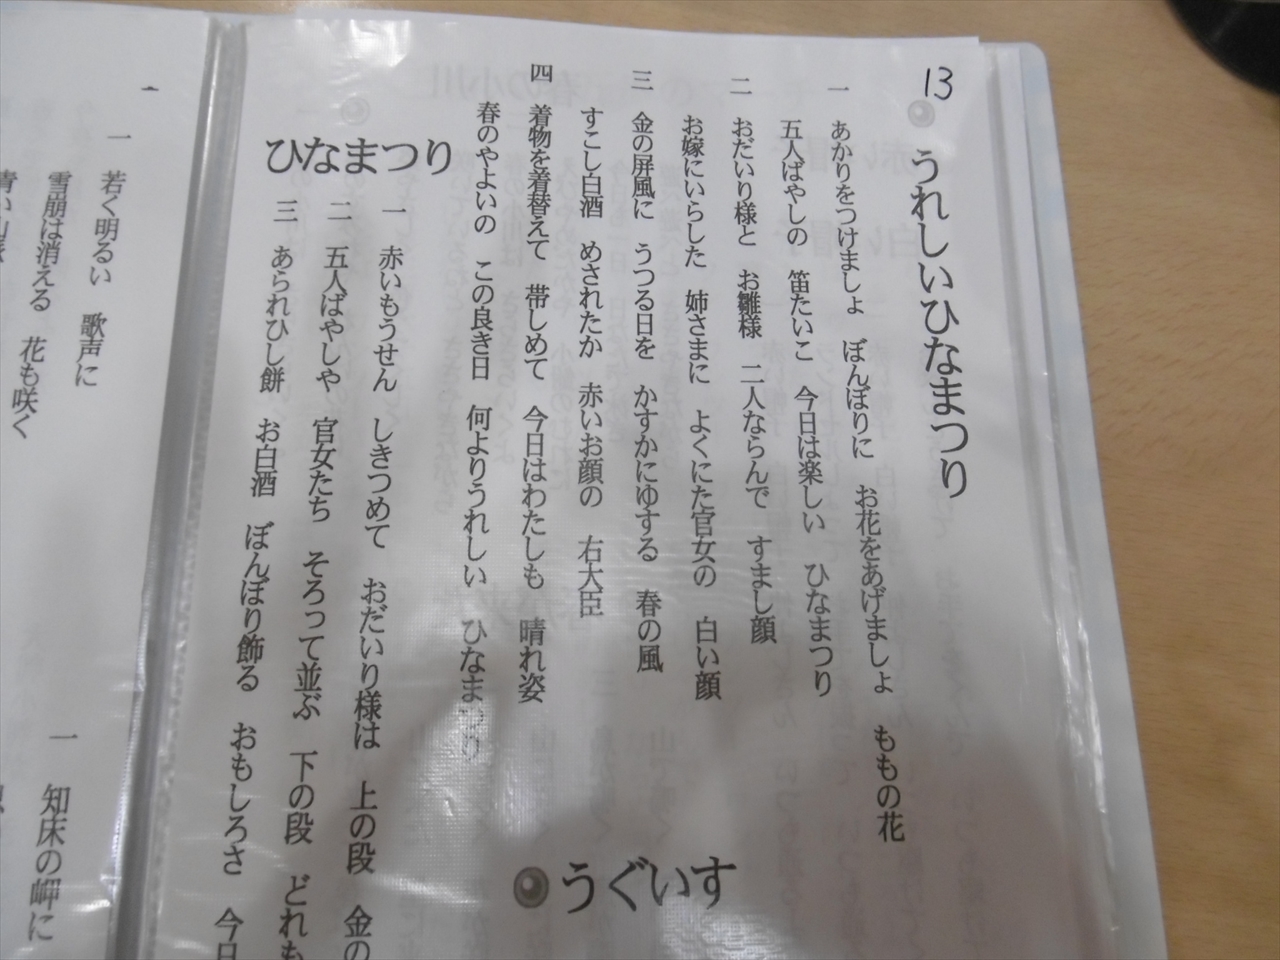 13
うれしいひなまつり
一 あかりをつけましょ ぼんぼりに お花をあげましょ ももの花
五人ばやしの 笛たいこ 今日は楽しい ひなまつり
二 おだいり様と お雛様 二人ならんで すまし顔
お嫁にいらした 姉さまに よくにた官女の 白い顔
三 金の屏風に うつる日を かすかにゆする 春の風
すこし白酒 めされたか 赤いお顔の 右大臣
四 着物を着替えて 帯しめて 今日はわたしも 晴れ姿
春のやよいの この良き日 何よりうれしい ひなまつり
ひなまつり
一 赤いもうせん しきつめて おだいり様は 上の段 金の
二 五人ばやしや 官女たち そろって並ぶ 下の段 どれも
三 あられひし餅 お白酒 ぼんぼり飾る おもしろさ 今日
うぐいす
一 若く明るい 歌声に
雪崩は消える 花も咲く
青い山脈
一 知床の岬に